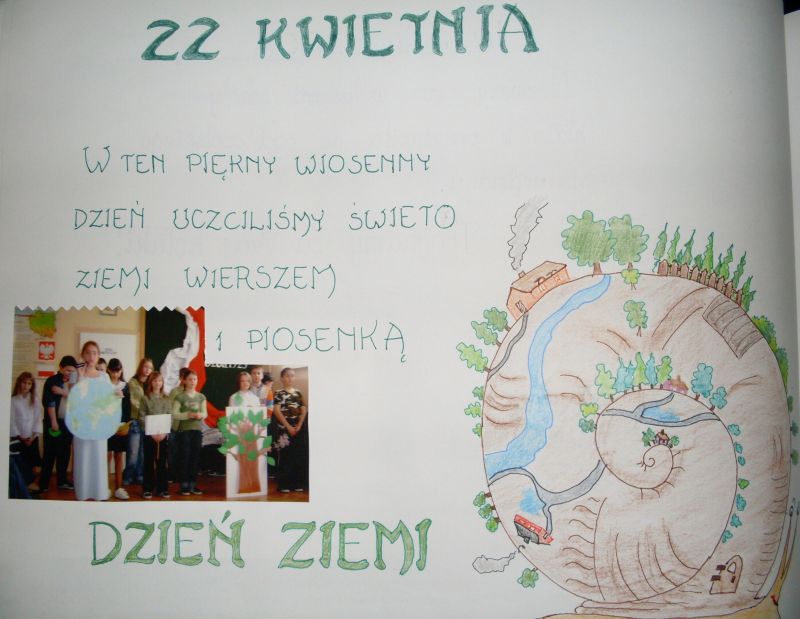 22 KWIETNIA
W TEN PIĘKNY WIOSENNY
DZIEŃ UCZCILIŚMY ŚWIĘTO
ZIEMI WIERSZEM
I PIOSENKĄ
DZIEŃ ZIEMI